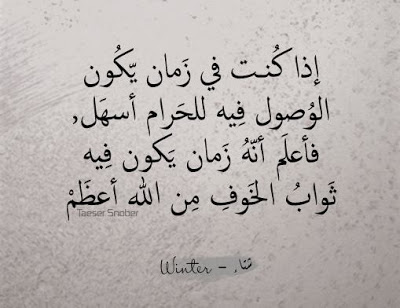 إذا كُنت في زَمان يّكُون
الوُصول فِيه للحَرام أسهَل,
فأعلَم أنّهُ زَمان يَكون فِيه
ثَوابُ الخَوفِ مِن الله أعظَمْ
Taeser Snober
Winter - شتاء